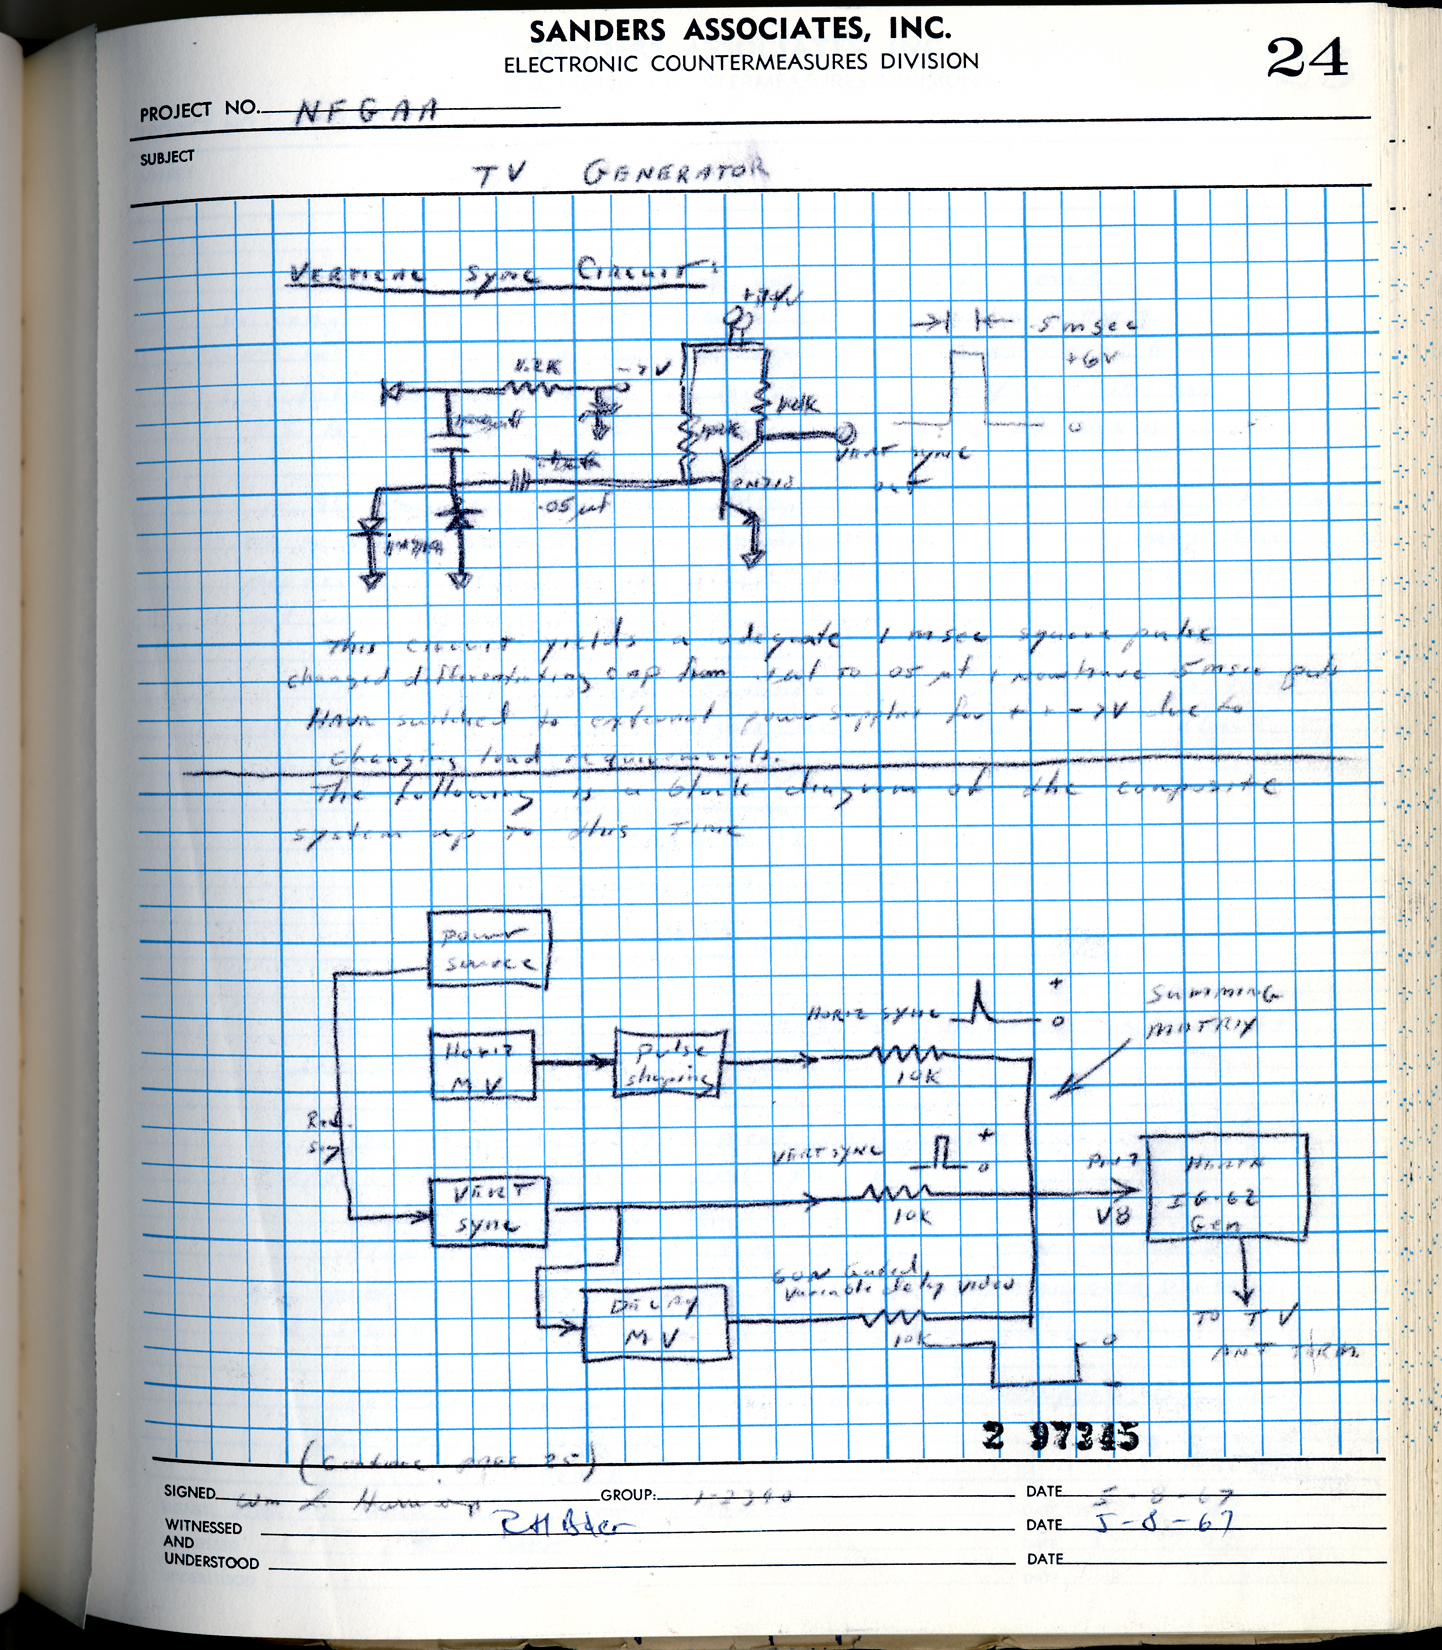 SANDERS ASSOCIATES, INC.
ELECTRONIC COUNTERMEASURES DIVISION
24
PROJECT NO. NFGAA
SUBJECT
TV GENERATOR
VERTICAL SYNC CIRCUIT:
.5 msec
+6V
0
1.2K
-7V
VERT SYNC
out
2N718
.05 µf
This circuit yields a adequate 1 msec square pulse
changed differentiating cap from .1 uf TO .05 µf, now have .5 msec puls
HAVE switched to external power supplies for + + -7V due to
changing load requirements.
The following is a block diagram of the composite
system up TO this TIME
power
source
HORIZ SYNC
+
0
SUMMING
MATRIX
Horiz
MV
pulse
shaping
10K
VERT SYNC
+
0
VERT
sync
10K
PIN 7
V8
HEATH
IG-62
Gen
variable delay video
DELAY
MV
10K
0
-
TO TV
ANT TERM.
2 97345
(Continue page 25)
SIGNED Wm L. Harrison GROUP: 1-2340 DATE 5-8-67
WITNESSED
AND
UNDERSTOOD
RH Baer DATE 5-8-67
DATE